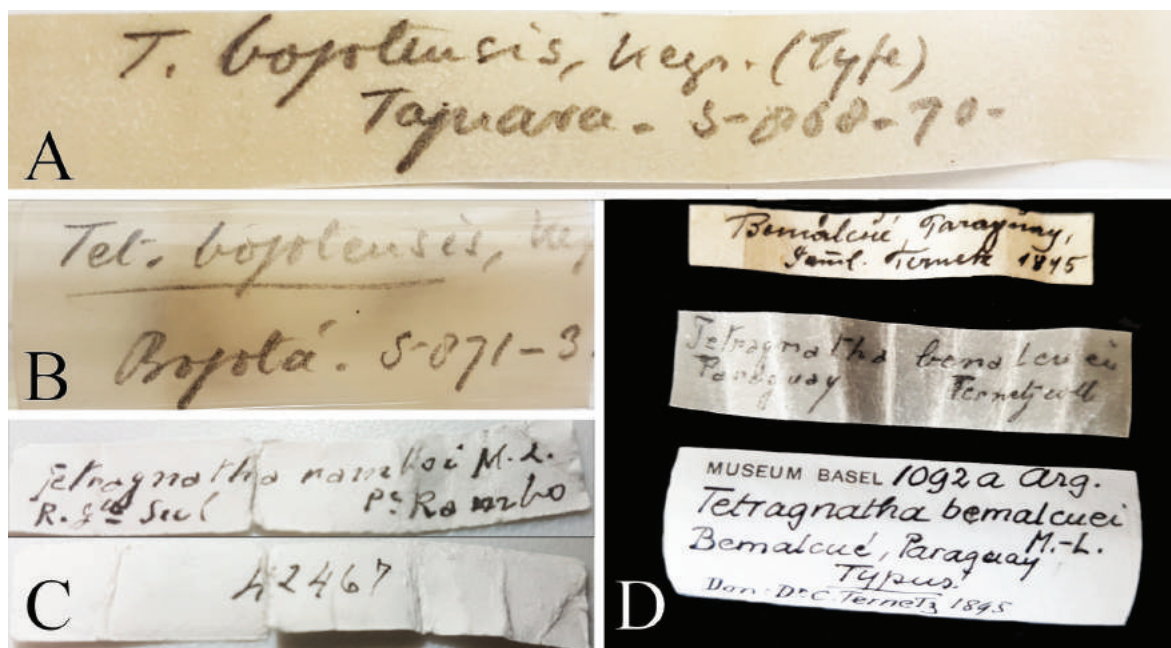 T. bogotensis, Keys. (Type)
Taquara - 5-868-70-
A
Tet. bogotensis, Key
Bogotá. 5-871-3.
B
Tetragnatha ramboi M.-L.
R. Gde Sul Pe Rambo
C
42467
Bemalcué, Paraguay,
Ternetz 1895
Tetragnatha bemalcuei
Paraguay Ternetz coll
MUSEUM BASEL 1092a Arg.
Tetragnatha bemalcuei
M.-L.
Bemalcué, Paraguay
Typus!
Don. Dr C. Ternetz 1895
D